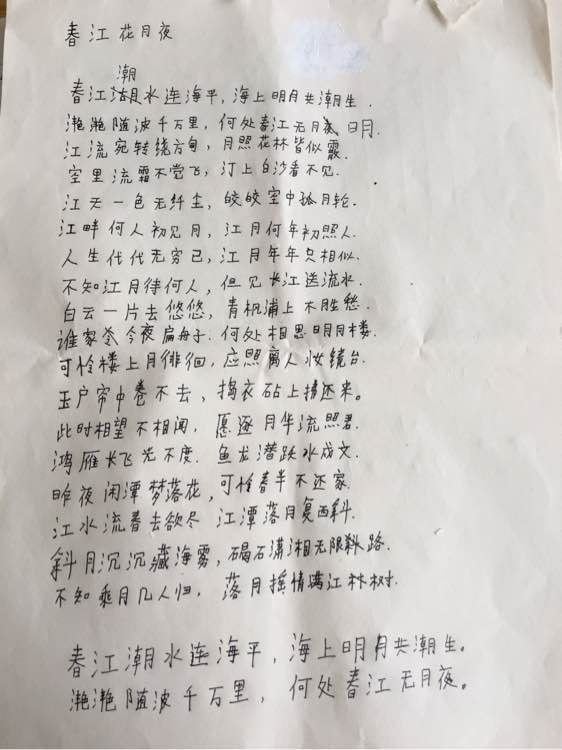 春江花月夜
潮
春江湖水连海平，海上明月共潮生.
滟滟随波千万里，何处春江无月夜 明.
江流宛转绕芳甸，月照花林皆似霰.
空里流霜不觉飞，汀上白沙看不见.
江天一色无纤尘，皎皎空中孤月轮.
江畔何人初见月，江月何年初照人.
人生代代无穷已，江月年年只相似.
不知江月待何人，但见长江送流水.
白云一片去悠悠，青枫浦上不胜愁.
谁家今夜扁舟子.何处相思明月楼.
可怜楼上月徘徊，应照离人妆镜台.
玉户帘中卷不去，捣衣砧上拂还来。
此时相望不相闻，愿逐月华流照君.
鸿雁长飞光不度.鱼龙潜跃水成文.
昨夜闲潭梦落花，可怜春半不还家.
江水流春去欲尽 江潭落月复西斜.
斜月沉沉藏海雾，碣石潇湘无限路.
不知乘月几人归，落月摇情满江树.
春江潮水连海平，海上明月共潮生。
滟滟随波千万里，何处春江无月夜。